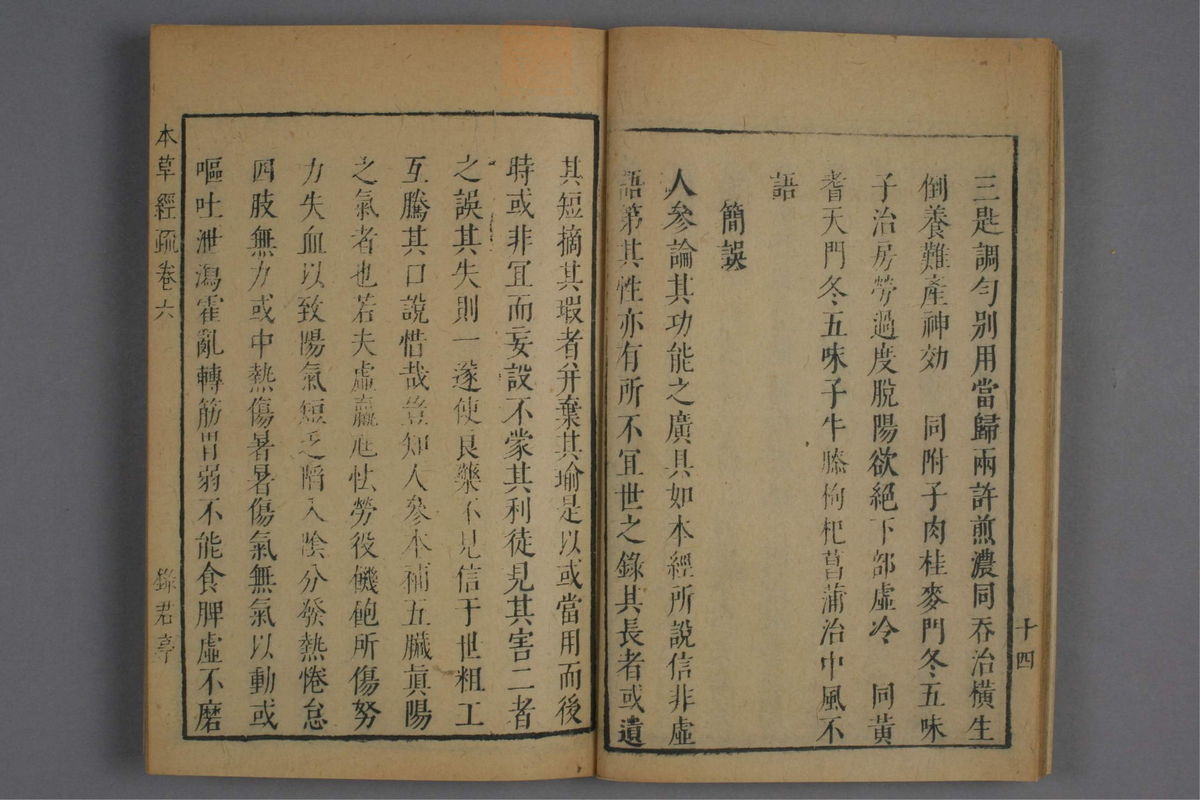 三匙調勻別用當歸兩許煎濃同吞治橫生
倒養難產神効　同附子肉桂麥門冬五味
子治房勞過度脫陽欲絕下部虛冷　同黃
耆天門冬五味子牛膝枸杞菖蒲治中風不
語
簡誤
人參論其功能之廣具如本經所說信非虛
語第其性亦有所不宜世之錄其長者或遺
十四
其短摘其瑕者并棄其瑜是以或當用而後
時或非宜而妄設不蒙其利徒見其害二者
之誤其失則一遂使良藥不見信于世粗工
互騰其口說惜哉豈知人參本補五臟真陽
之氣者也若夫虛羸尪怯勞役饑飽所傷努
力失血以致陽氣短乏陷入陰分發熱倦怠
四肢無力或中熱傷暑暑傷氣無氣以動或
嘔吐泄瀉霍亂轉筋胃弱不能食脾虛不磨
本草經疏卷六
綠君亭